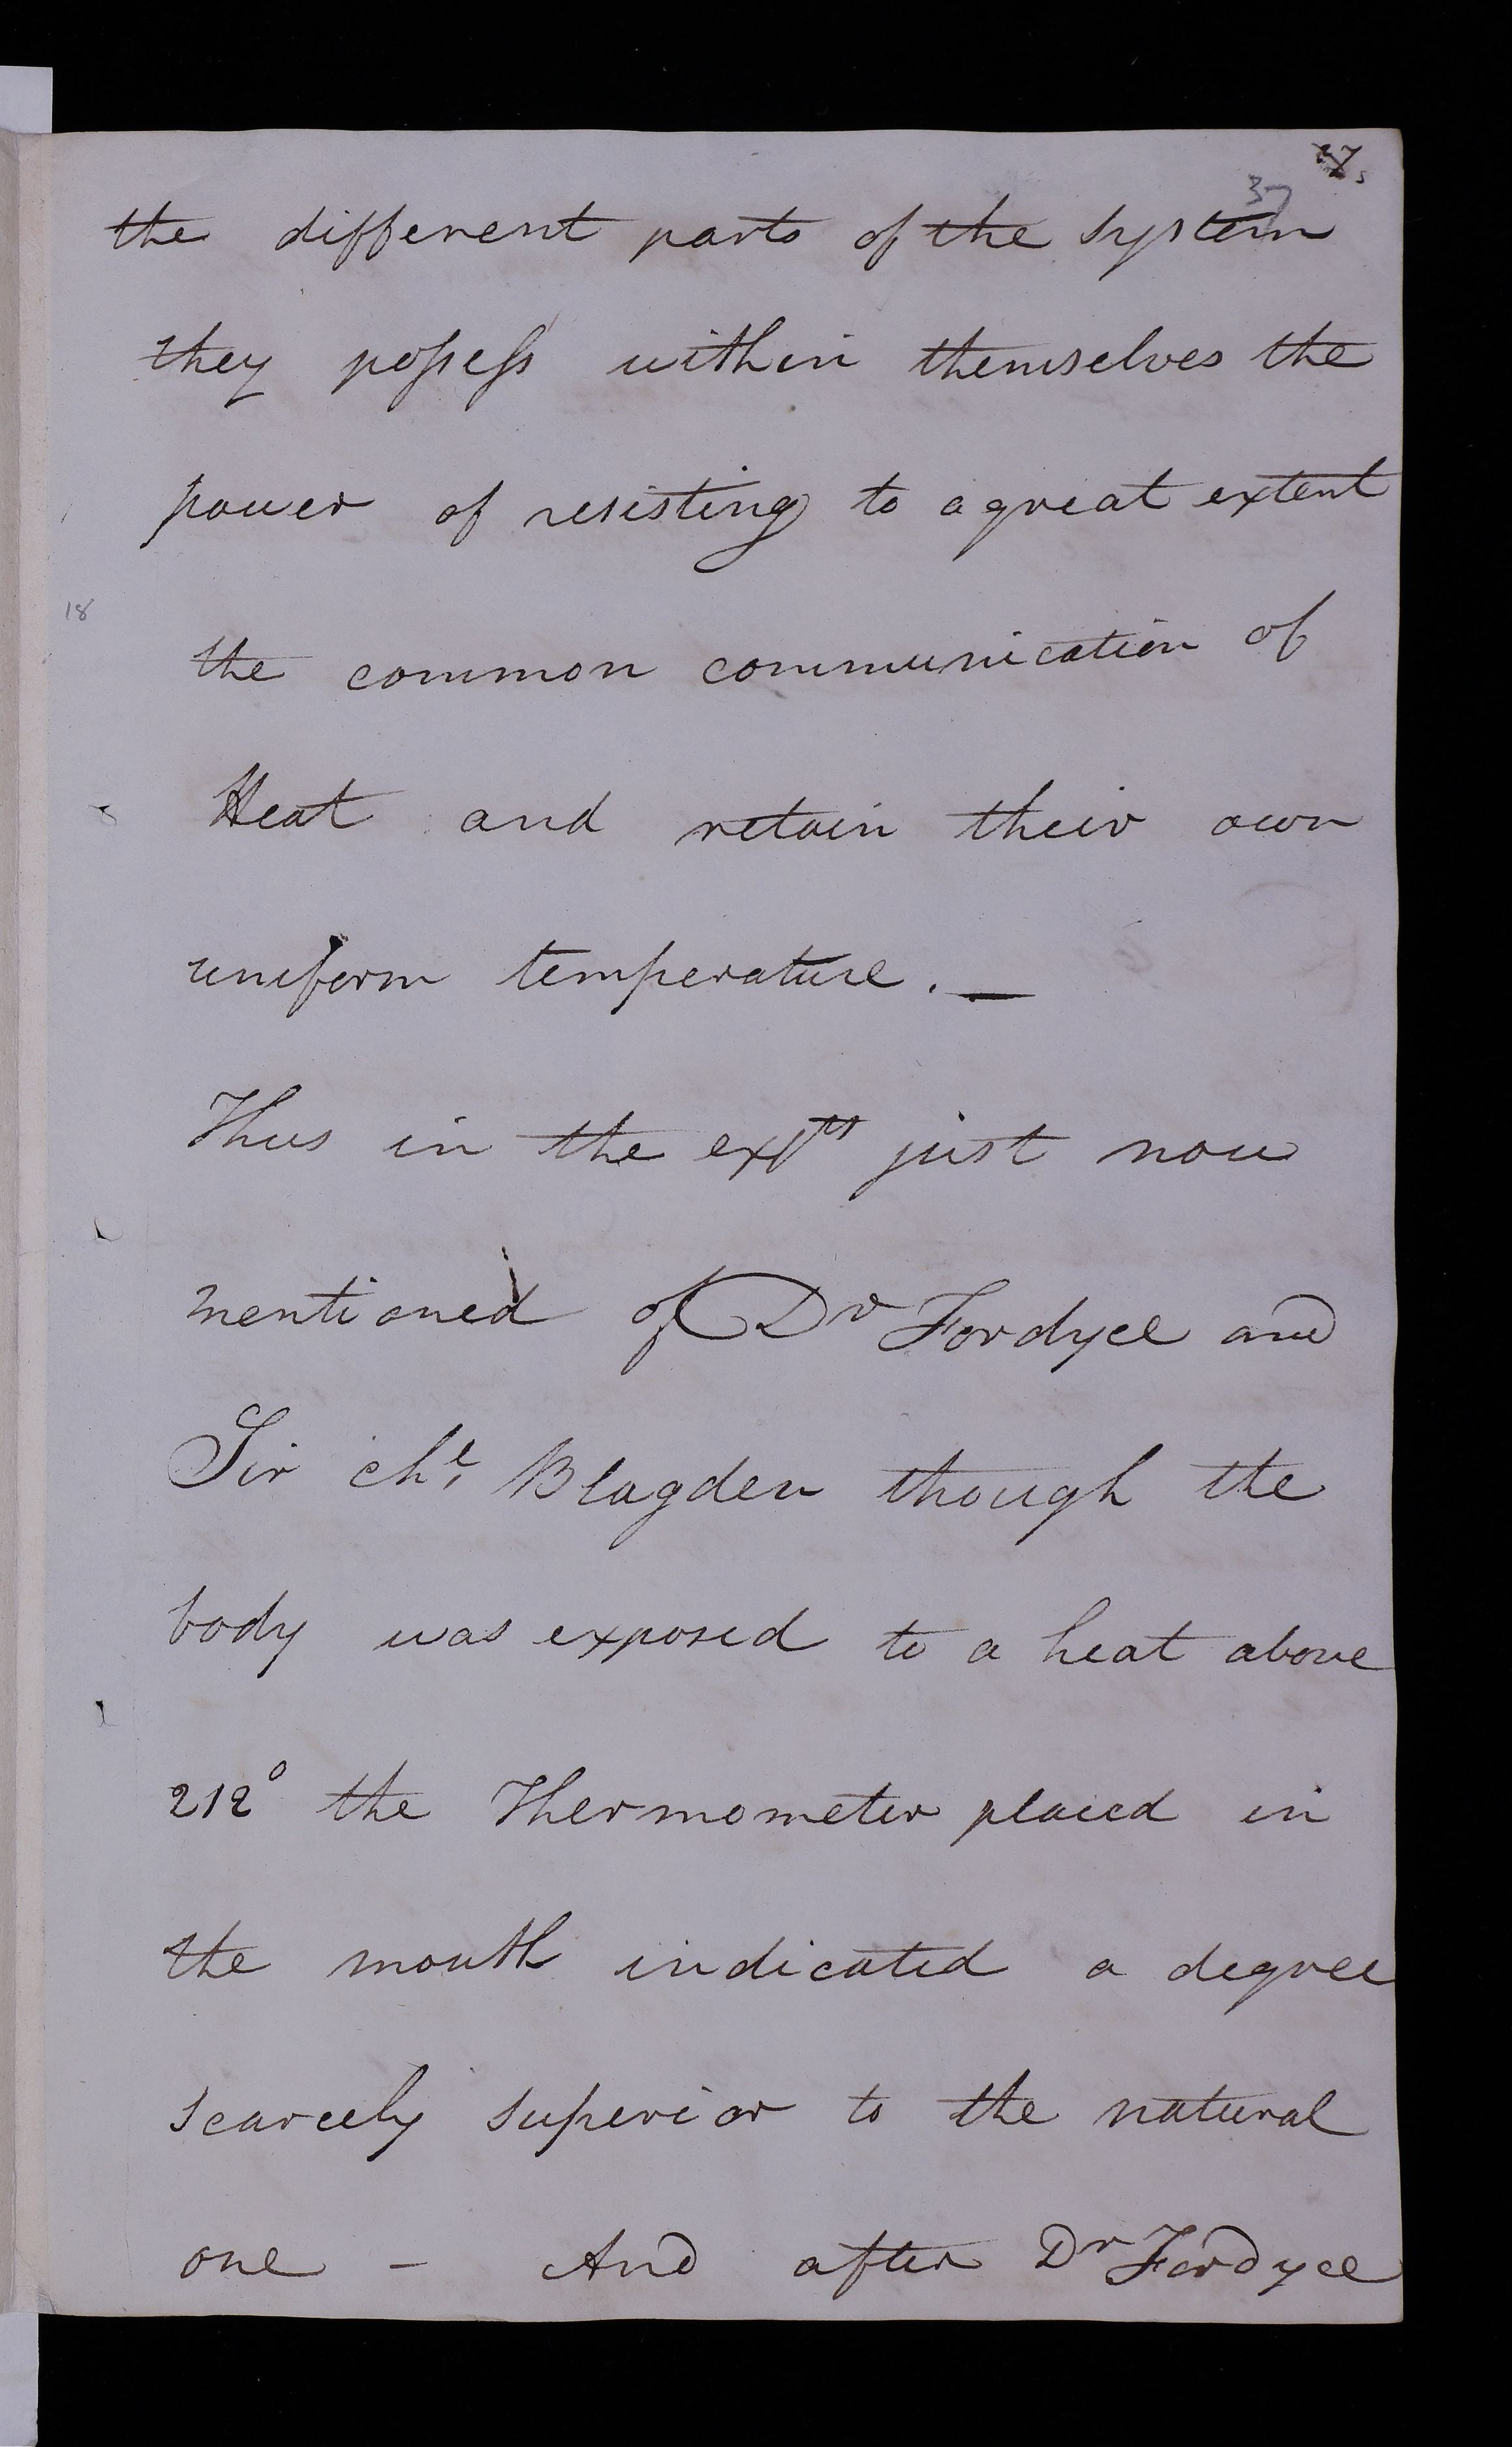 27
37
the different parts of the system
they poſseſs within themselves the
power of resisting to a great extent
18
the common communication of
Heat and retain their own
uniform temperature. —
Thus in the expts just now
mentioned of Dr Fordyce and
Sir Blagden though the
body was exposed to a heat above
212° the Thermometer placed in
the mouth indicated a degree
scarcely superior to the natural
one - And after Dr Fordyce